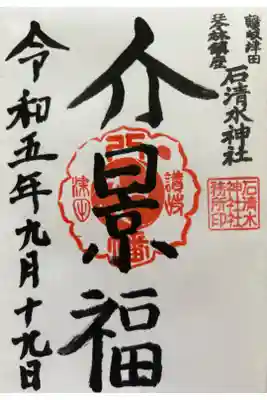 讃岐津田
琴林鎮座
石清水神社
石清水
神社社
務所印
介景福
讃岐
令和五年九月十九日